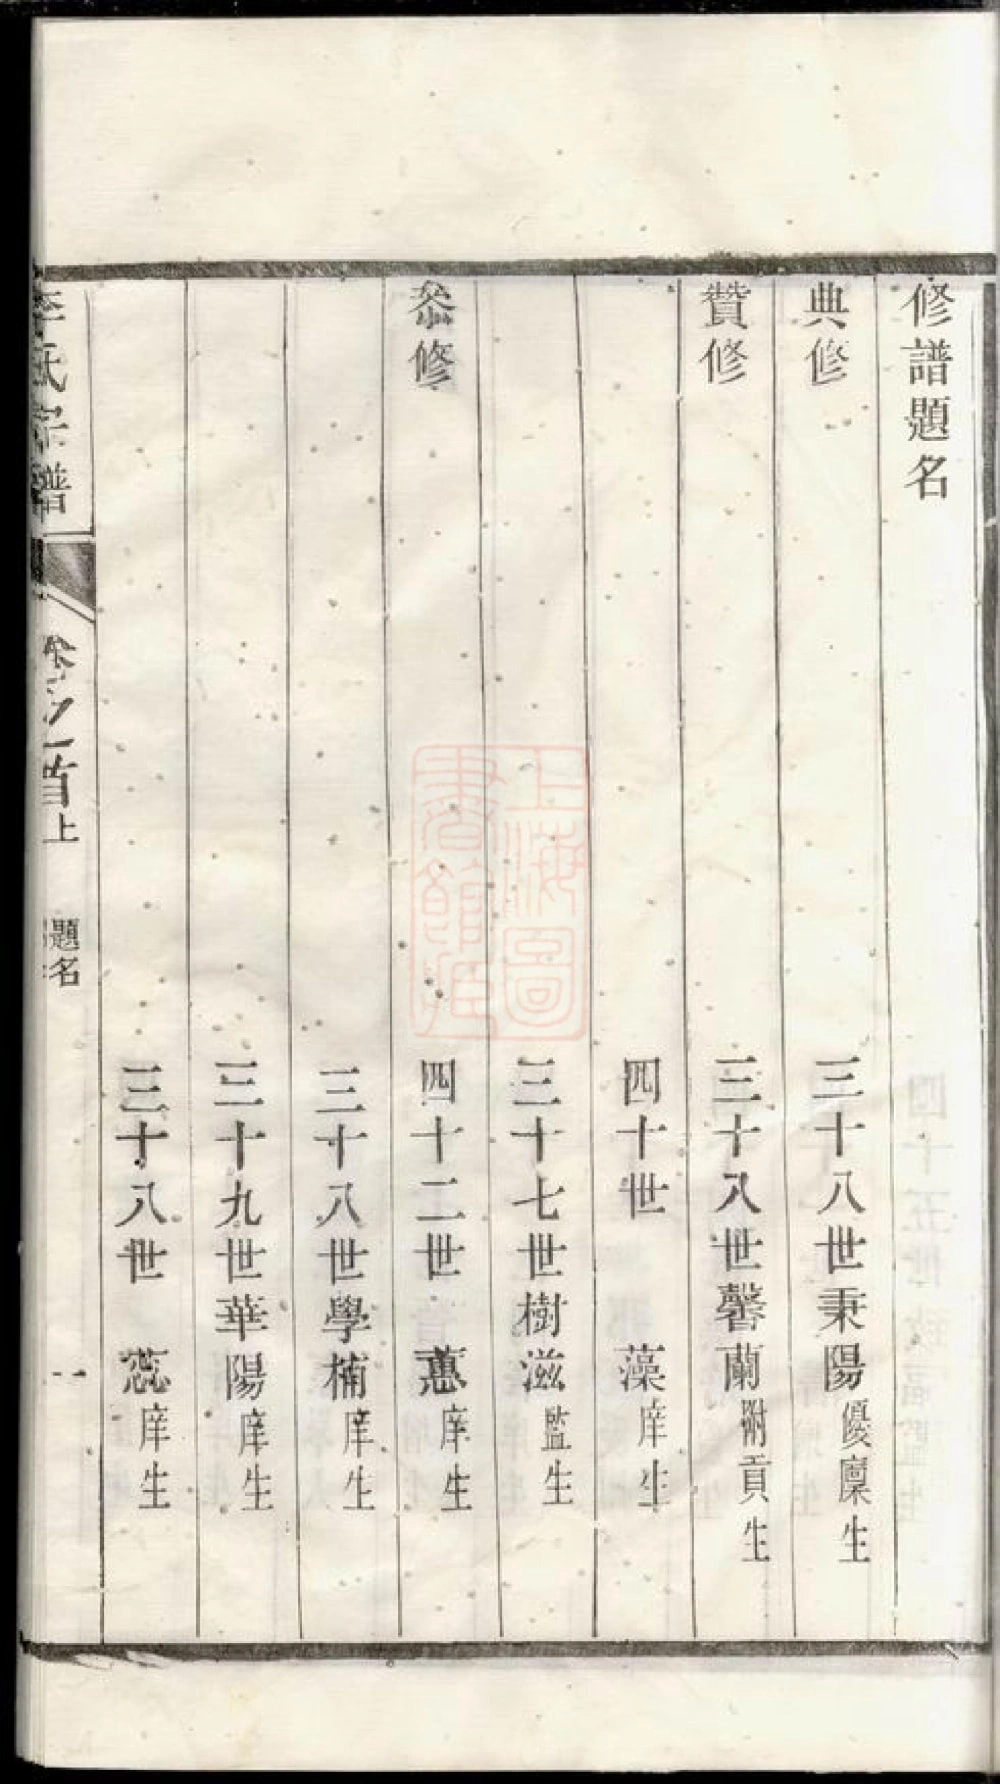 修譜題名
典修 三十八世秉陽優廩生
贊修 三十八世馨蘭附貢生
四十世 藻庠生
三十七世樹滋監生
叅修 四十二世 蕙庠生
三十八世學楠庠生
三十九世華陽庠生
三十八世 蕊庠生
李氏宗譜 卷之首上 題名 一
上海圖書館藏